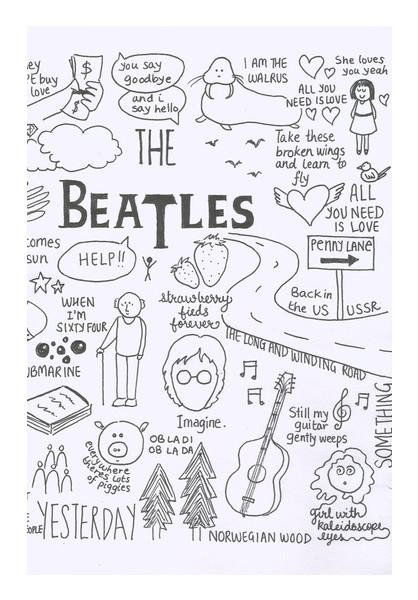 $
$
you say
goodbye
and i
say hello
I AM THE
WALRUS
She loves
you yeah
buy
love
ALL YOU
NEED IS LOVE
THE
BEATLES
Take these
broken wings
and learn to
fly
ALL
YOU NEED
IS LOVE
PENNY LANE
HELP!!
sun
strawberry
fieds
forever
Back in
the US
USSR
WHEN
I'M
SIXTY FOUR
THE LONG AND WINDING ROAD
Imagine.
Still my
guitar
gently weeps
SOMETHING
OBLADI
OB LA DA
everywhere
theres lots
of piggies
YESTERDAY
NORWEGIAN WOOD
girl with
kaleidoscope
eyes